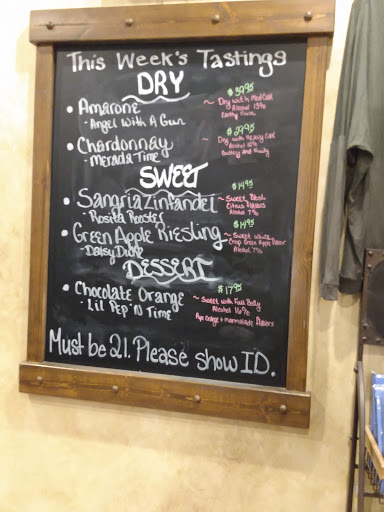 This Week's Tastings
DRY
• Amarone
- Angel With A Gun
$39.95
~ Dry with Med Oak
Alcohol 15%
Earthy Finish
• Chardonnay
- Merada Time
$29.95
~ Dry with Heavy Oak
Alcohol
Buttery and Fruity
SWEET
• Sangria Zinfandel
- Rosita Rooster
$14.95
~ Sweet Blush
Citrus Flavors
Alcohol 7%
• Green Apple Riesling
- Daisy Duke
$14.95
~ Sweet White
Crisp Green Apple Flavor
Alcohol 7%
DESSERT
• Chocolate Orange
- Lil Pep 'N Time
$17.95
~ Sweet with Full Body
Alcohol 16%
Ripe Orange + marmalade flavors
Must be 21. Please show ID.